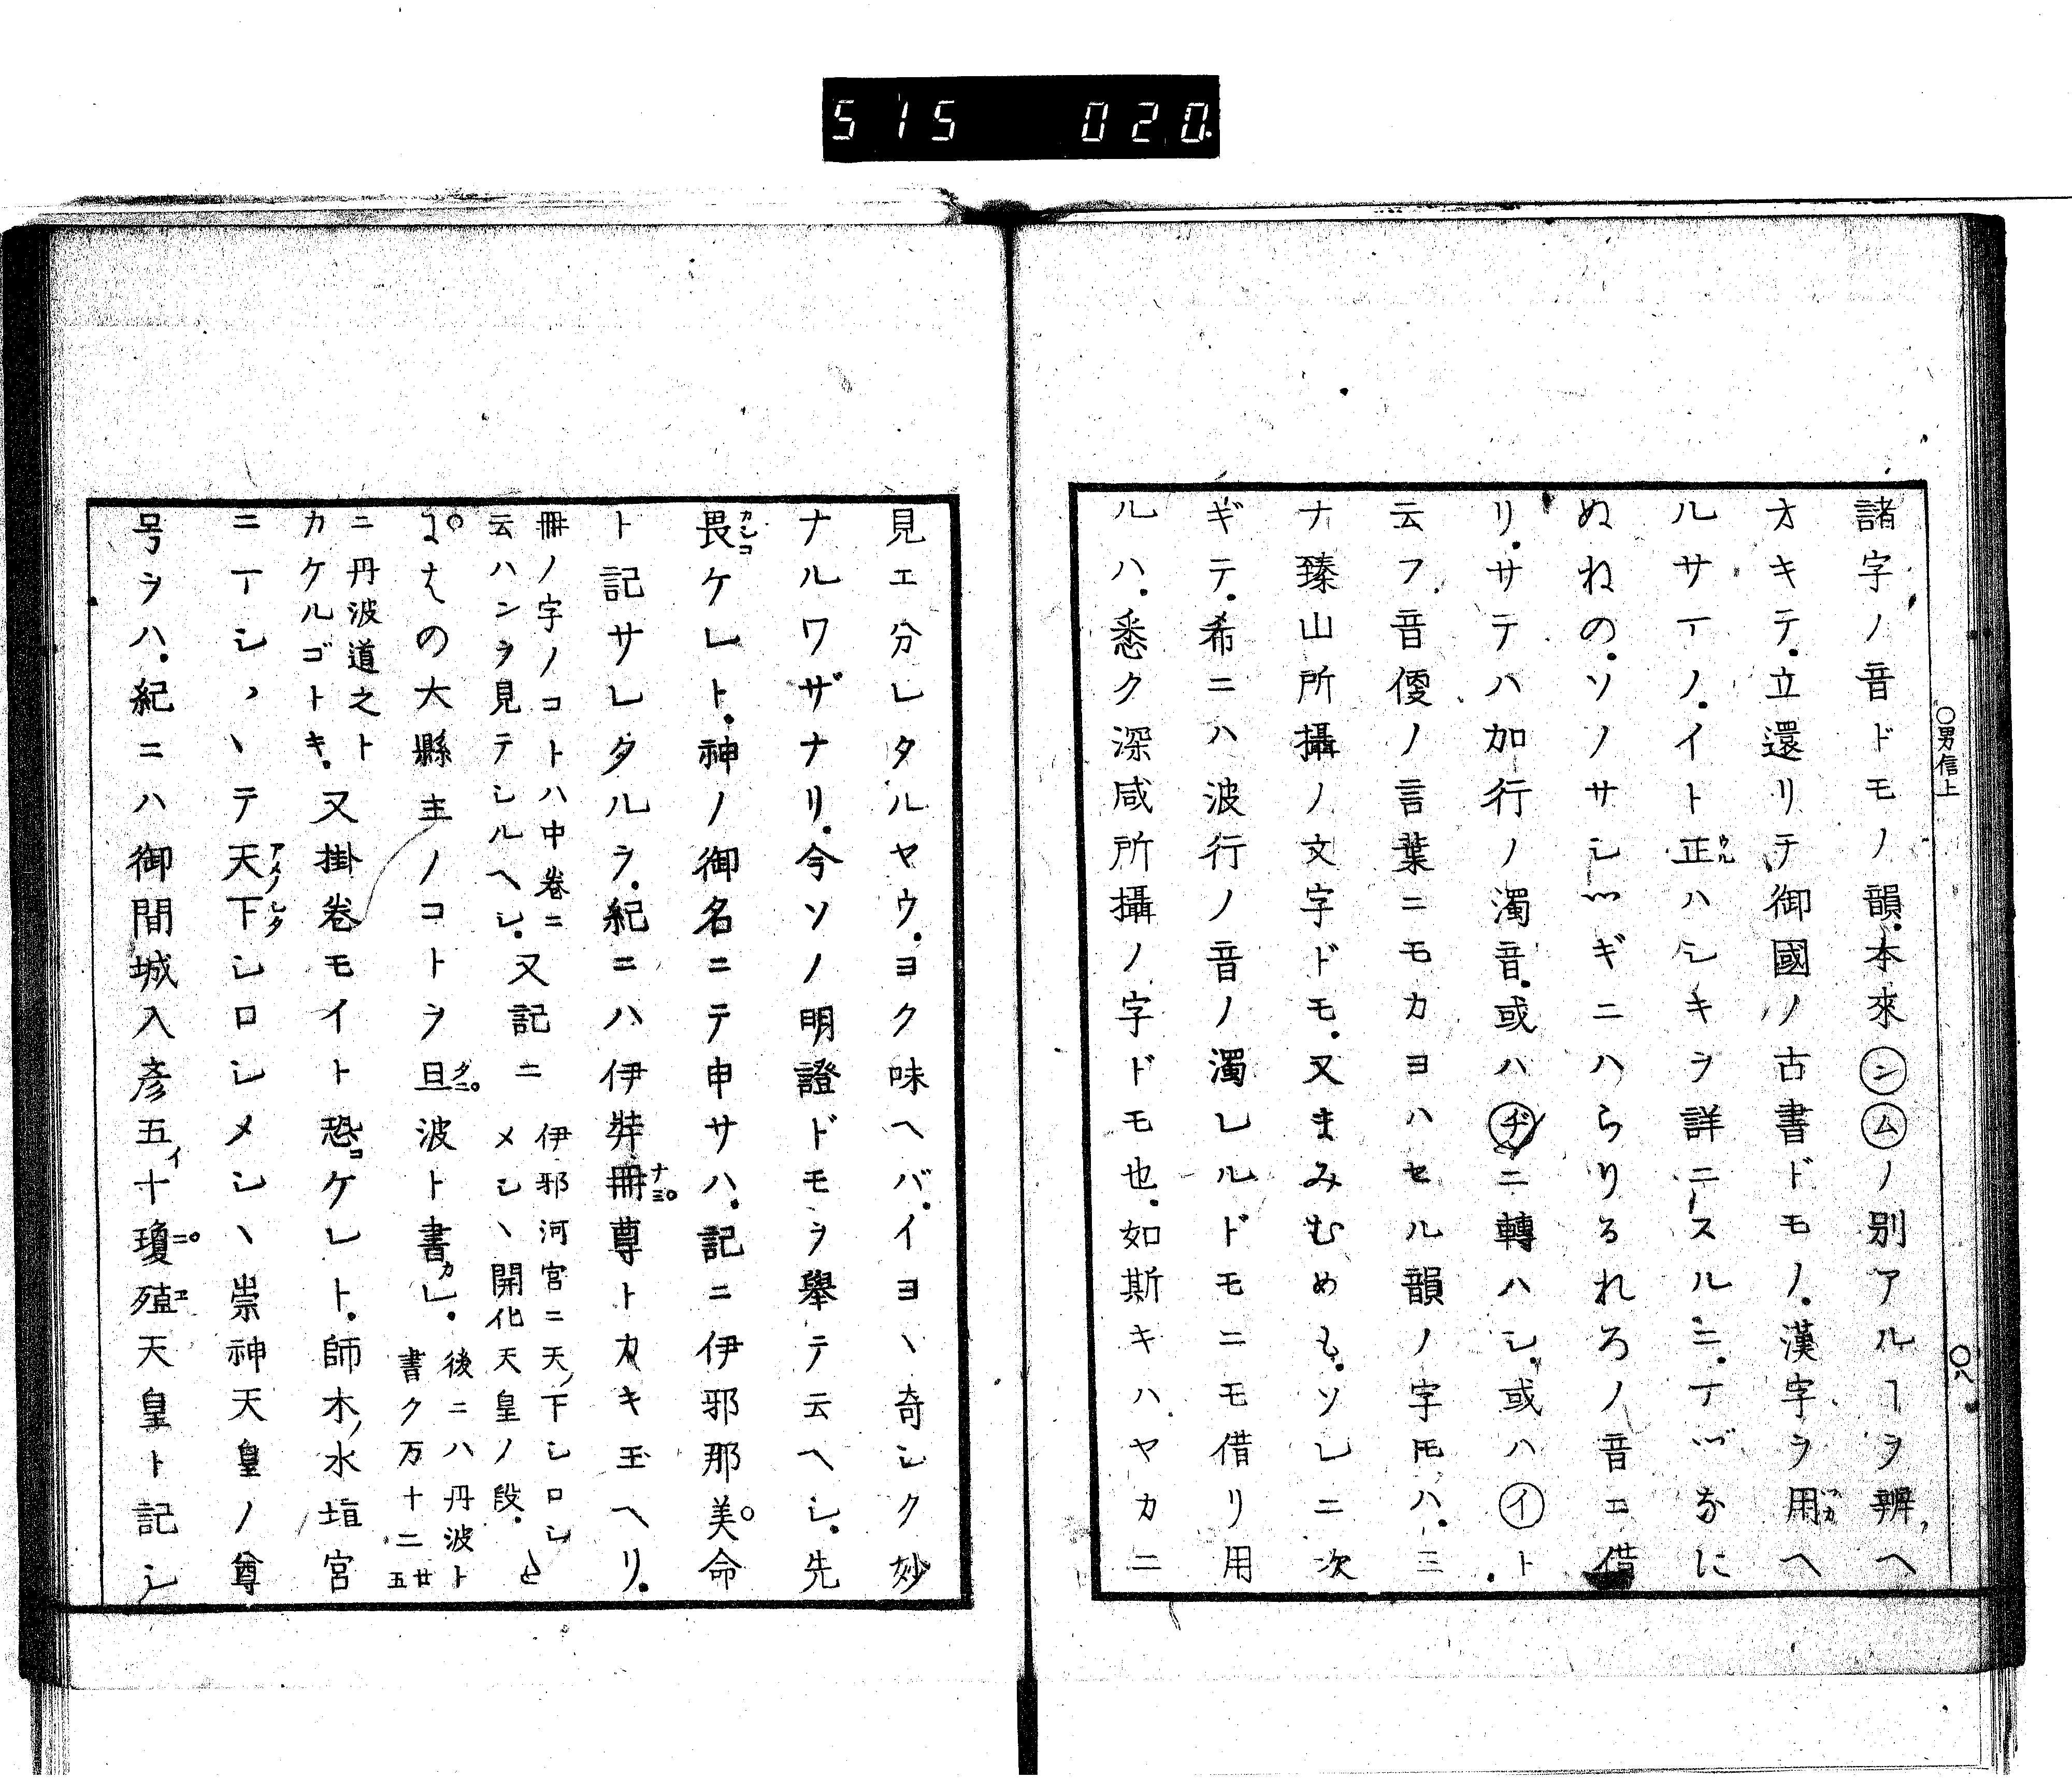 515 020.
○男信上
○八
諸字ノ音ドモノ韻.本來㋛㋰ノ別アルヿヲ辨ヘ
オキテ.立還リテ御國ノ古書ドモノ.漢字ヲ用ヘ
ルサマノ.イト正ハシキヲ詳ニスルニ.ナ〴〵なに
ぬねの.ソノサシ〴〵ギニハらりるれろノ音ニ借
リ.サテハ加行ノ濁音.或ハ㋖ニ轉ハシ.或ハ㋑ト
云フ音便ノ言葉ニモカヨハセル韻ノ字モハ.三
ナ臻山所攝ノ文字ドモ.又まみむめも.ソレニ次
ギテ.希ニハ波行ノ音ノ濁レルドモニモ借リ用
ルハ.悉ク深咸所攝ノ字ドモ也.如斯キハヤカニ
見エ分レタルヤウ.ヨク味ヘバ.イヨヽ奇シク妙
ナルワザナリ.今ソノ明證ドモヲ擧テ云ヘシ.先
畏ケレト.神ノ御名ニテ申サハ.記ニ伊邪那美命
ト記サレタルヲ.紀ニハ伊弉冊尊トカキ玉ヘリ.
冊ノ字ノコトハ中卷ニ
云ハンヲ見テシルヘシ.又記ニ
伊邪河宮ニ天ノ下シロシ
メシヽ開化天皇ノ段.
はの大縣主ノコトヲ旦波ト書レ.
後ニハ丹波ト
書ク万十二廿五
ニ丹波道之ト
カケルゴトキ.又掛卷モイト恐ケレト.師木ノ水垣宮
ニマシヽヽテ天下シロシメシヽ崇神天皇ノ尊
号ヲハ.紀ニハ御間城入彥五十瓊殖天皇ト記シ